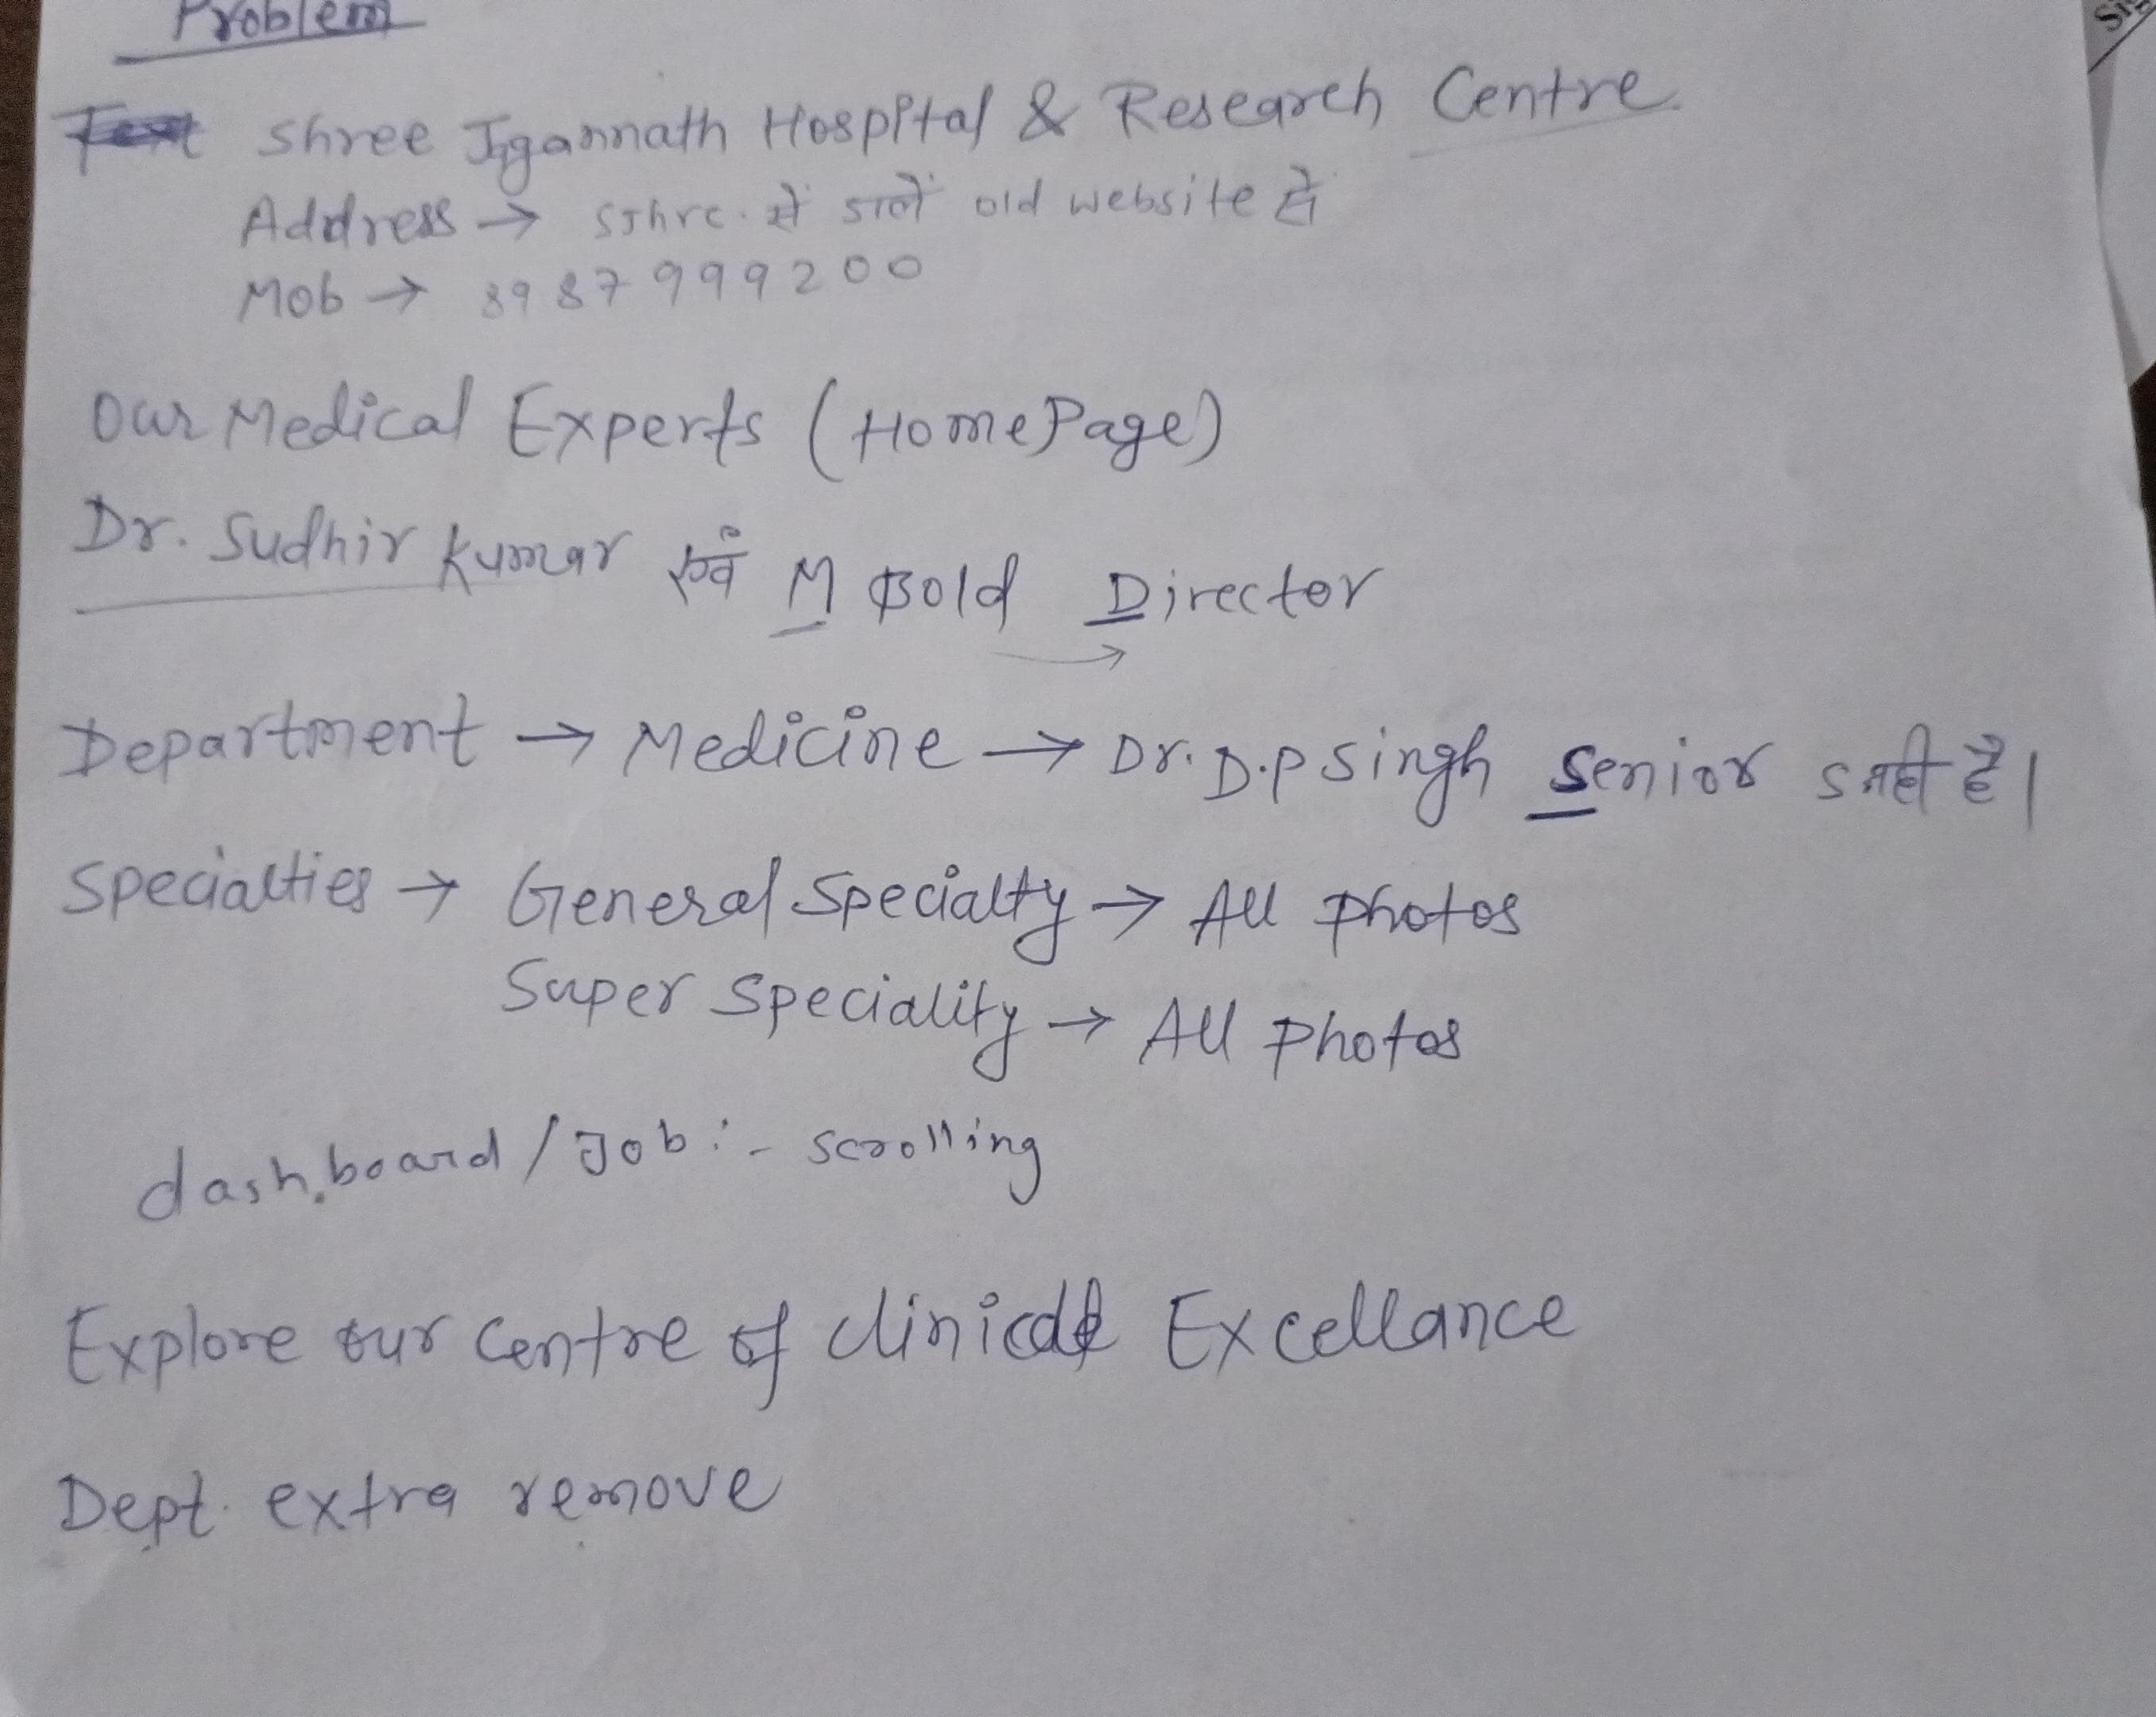 Problem
Shree Jgannath Hospital & Research Centre
Address → SJhrc. से डालें old website से
Mob → 8987999200
Our Medical Experts (HomePage)
Dr. Sudhir Kumar एवं M Bold Director
Department → Medicine → Dr. D.P Singh Senior S नहीं है।
Specialties → General Specialty → All Photos
Super Speciality → All Photos
dashboard / Job :- scrolling
Explore our Centre of clinical Excellance
Dept. extra remove